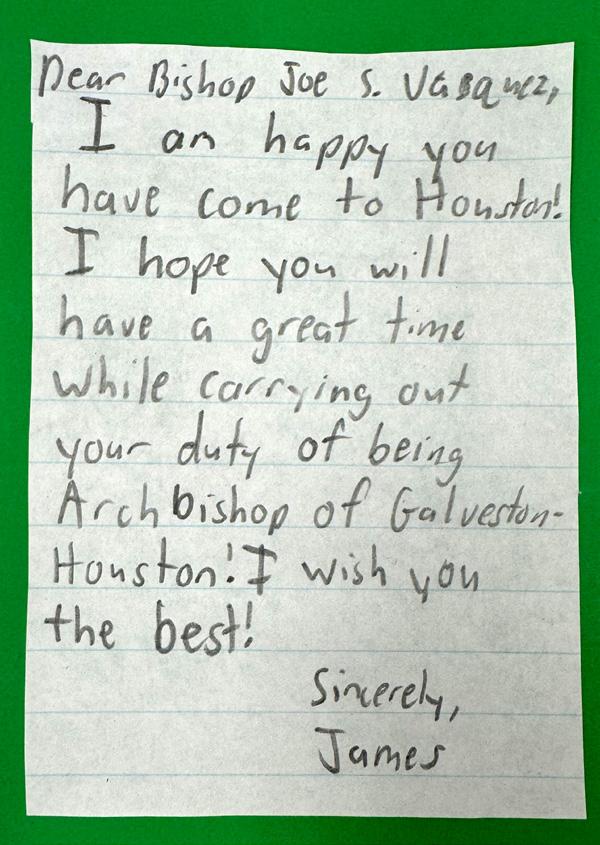 Dear Bishop Joe S. Vásquez,
I am happy you
have come to Houston!
I hope you will
have a great time
while carrying out
your duty of being
Archbishop of Galveston-
Houston! I wish you
the best!
Sincerely,
James